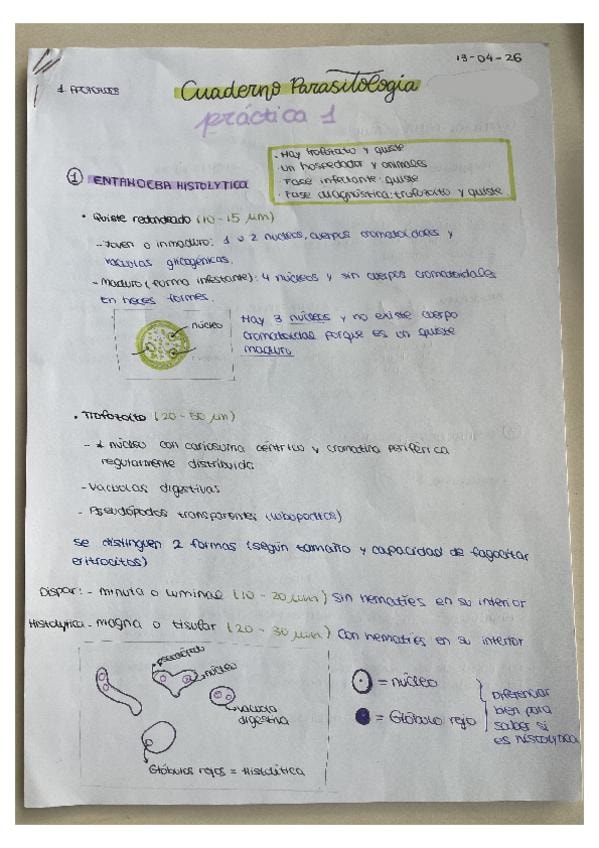 19-04-26
Cuaderno Parasitología
práctica 1
· Hay trofozoito y quiste
· Un hospedador y animales
· Fase infectante: quiste
· Fase diagnóstica: trofozoito y quiste
1 ENTAMOEBA HISTOLYTICA
· Quiste redondeado (10-15 µm)
- Joven o inmaduro: 1 o 2 nucleos, cuerpos cromatoidales y
vacuolas glicogénicas.
- Maduro (forma infestante): 4 núcleos y sin cuerpos cromatoidales
en heces formes.
núcleo
Hay 3 núcleos y no existe cuerpo
cromatoidal porque es un quiste
maduro
· Trofozoito (20-50 µm)
- 1 núcleo con cariosoma céntrico y cromatina periférica
regularmente distribuida
- Vacuolas digestivas
- Pseudópodos transparentes (lobopodios)
se distinguen 2 formas (según tamaño y capacidad de fagocitar
eritrocitos)
Dispar: - minuta o luminal (10-20 µm) Sin hematíes en su interior
Histolytica - magna o tisular (20-30 µm) Con hematíes en su interior
pseudópodo
núcleo
vacuola
digestiva
Glóbulos rojos = Histolítica
= núcleo
= Glóbulo rojo
Diferenciar
bien para
saber si
es histolytica